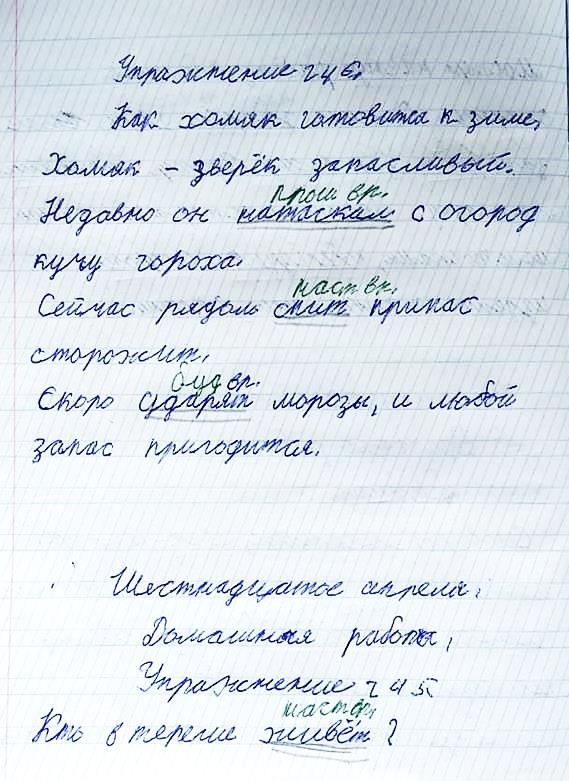 Упражнение 246.
Как хомяк готовится к зиме.
Хомяк – зверёк запасливый.
прош вр.
Недавно он натаскал с огород
кучу гороха.
наст вр.
Сейчас рядом спит припас
сторожит.
буд вр.
Скоро ударят морозы, и любой
запас пригодится.
Шестнадцатое апреля.
Домашняя работа.
Упражнение 245
наст вр.
Кто в тереме живёт?